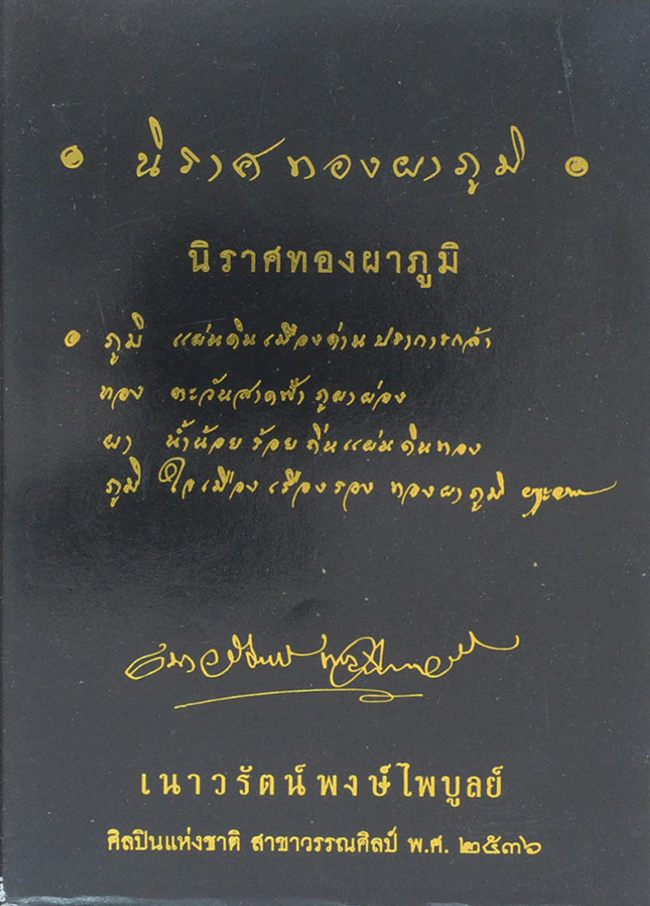 ๏ นิราศทองผาภูมิ ๏
นิราศทองผาภูมิ
๏ ภูมิ แผ่นดินเมืองด่าน ปราการกล้า
ทอง ตะวันสาดฟ้า ภูผาผ่อง
ผา น้ำน้อย ร้อย ถิ่นแผ่นดินทอง
ภูมิ ใจเมือง เรืองรอง ทองผาภูมิ
เนาวรัตน์ พงษ์ไพบูลย์
เนาวรัตน์ พงษ์ไพบูลย์
ศิลปินแห่งชาติ สาขาวรรณศิลป์ พ.ศ. ๒๕๓๖